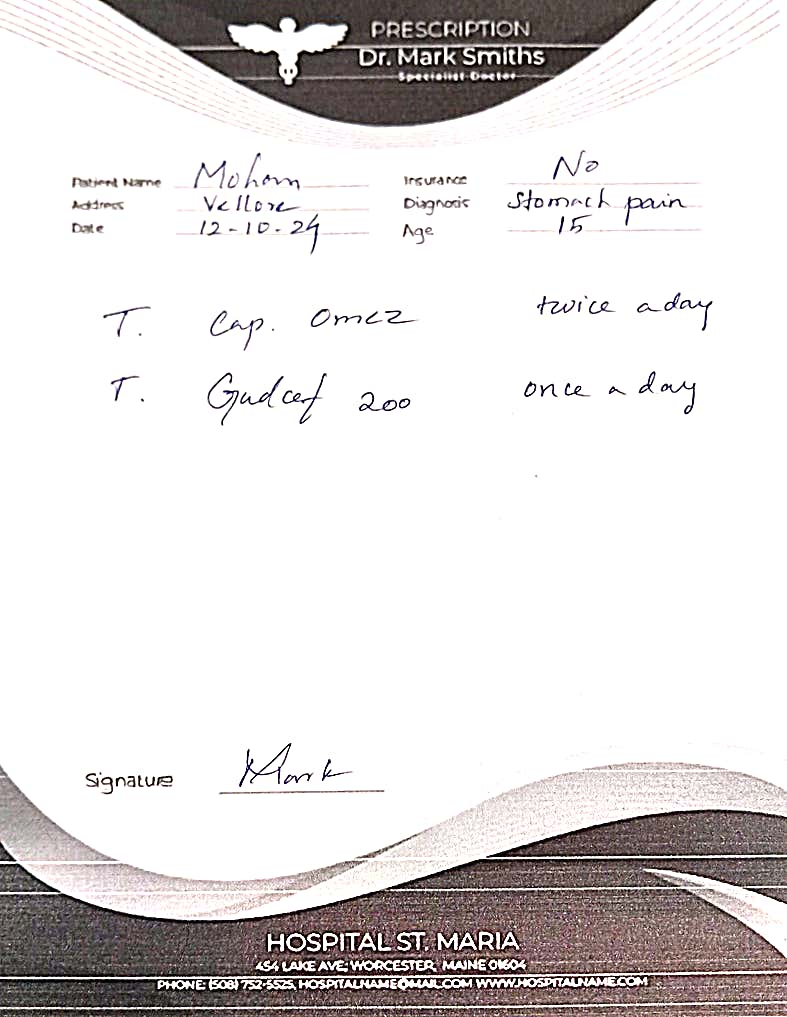 PRESCRIPTION
Dr. Mark Smiths
Specialist Doctor
Patient Name Mohom Insurance No
Address Vellore Diagnosis Stomach pain
Date 12-10-24 Age 15
T. Cap. Omez twice a day
T. Gudcef 200 once a day
Signature Mark
HOSPITAL ST. MARIA
454 LAKE AVE; WORCESTER, MAINE 01604
PHONE: (508) 752-5525, HOSPITALNAME@MAIL.COM WWW.HOSPITALNAME.COM